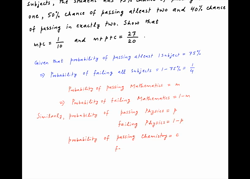 Subjects, the student has 75% chance of passing
one, 50% chance of passing atleast two and 40% chance
of passing in exactly two. Show that
mpc = 1/10 and m+p+c = 27/20.
Given that probability of passing atleast 1 Subject = 75%
⇒ Probability of failing all subjects = 1-75% = 1/4
Probability of passing Mathematics = m
⇒ Probability of failing Mathematics = 1-m
Similarly, probability of passing Physics = p
failing Physics = 1-p
probability of passing Chemistry = c
f